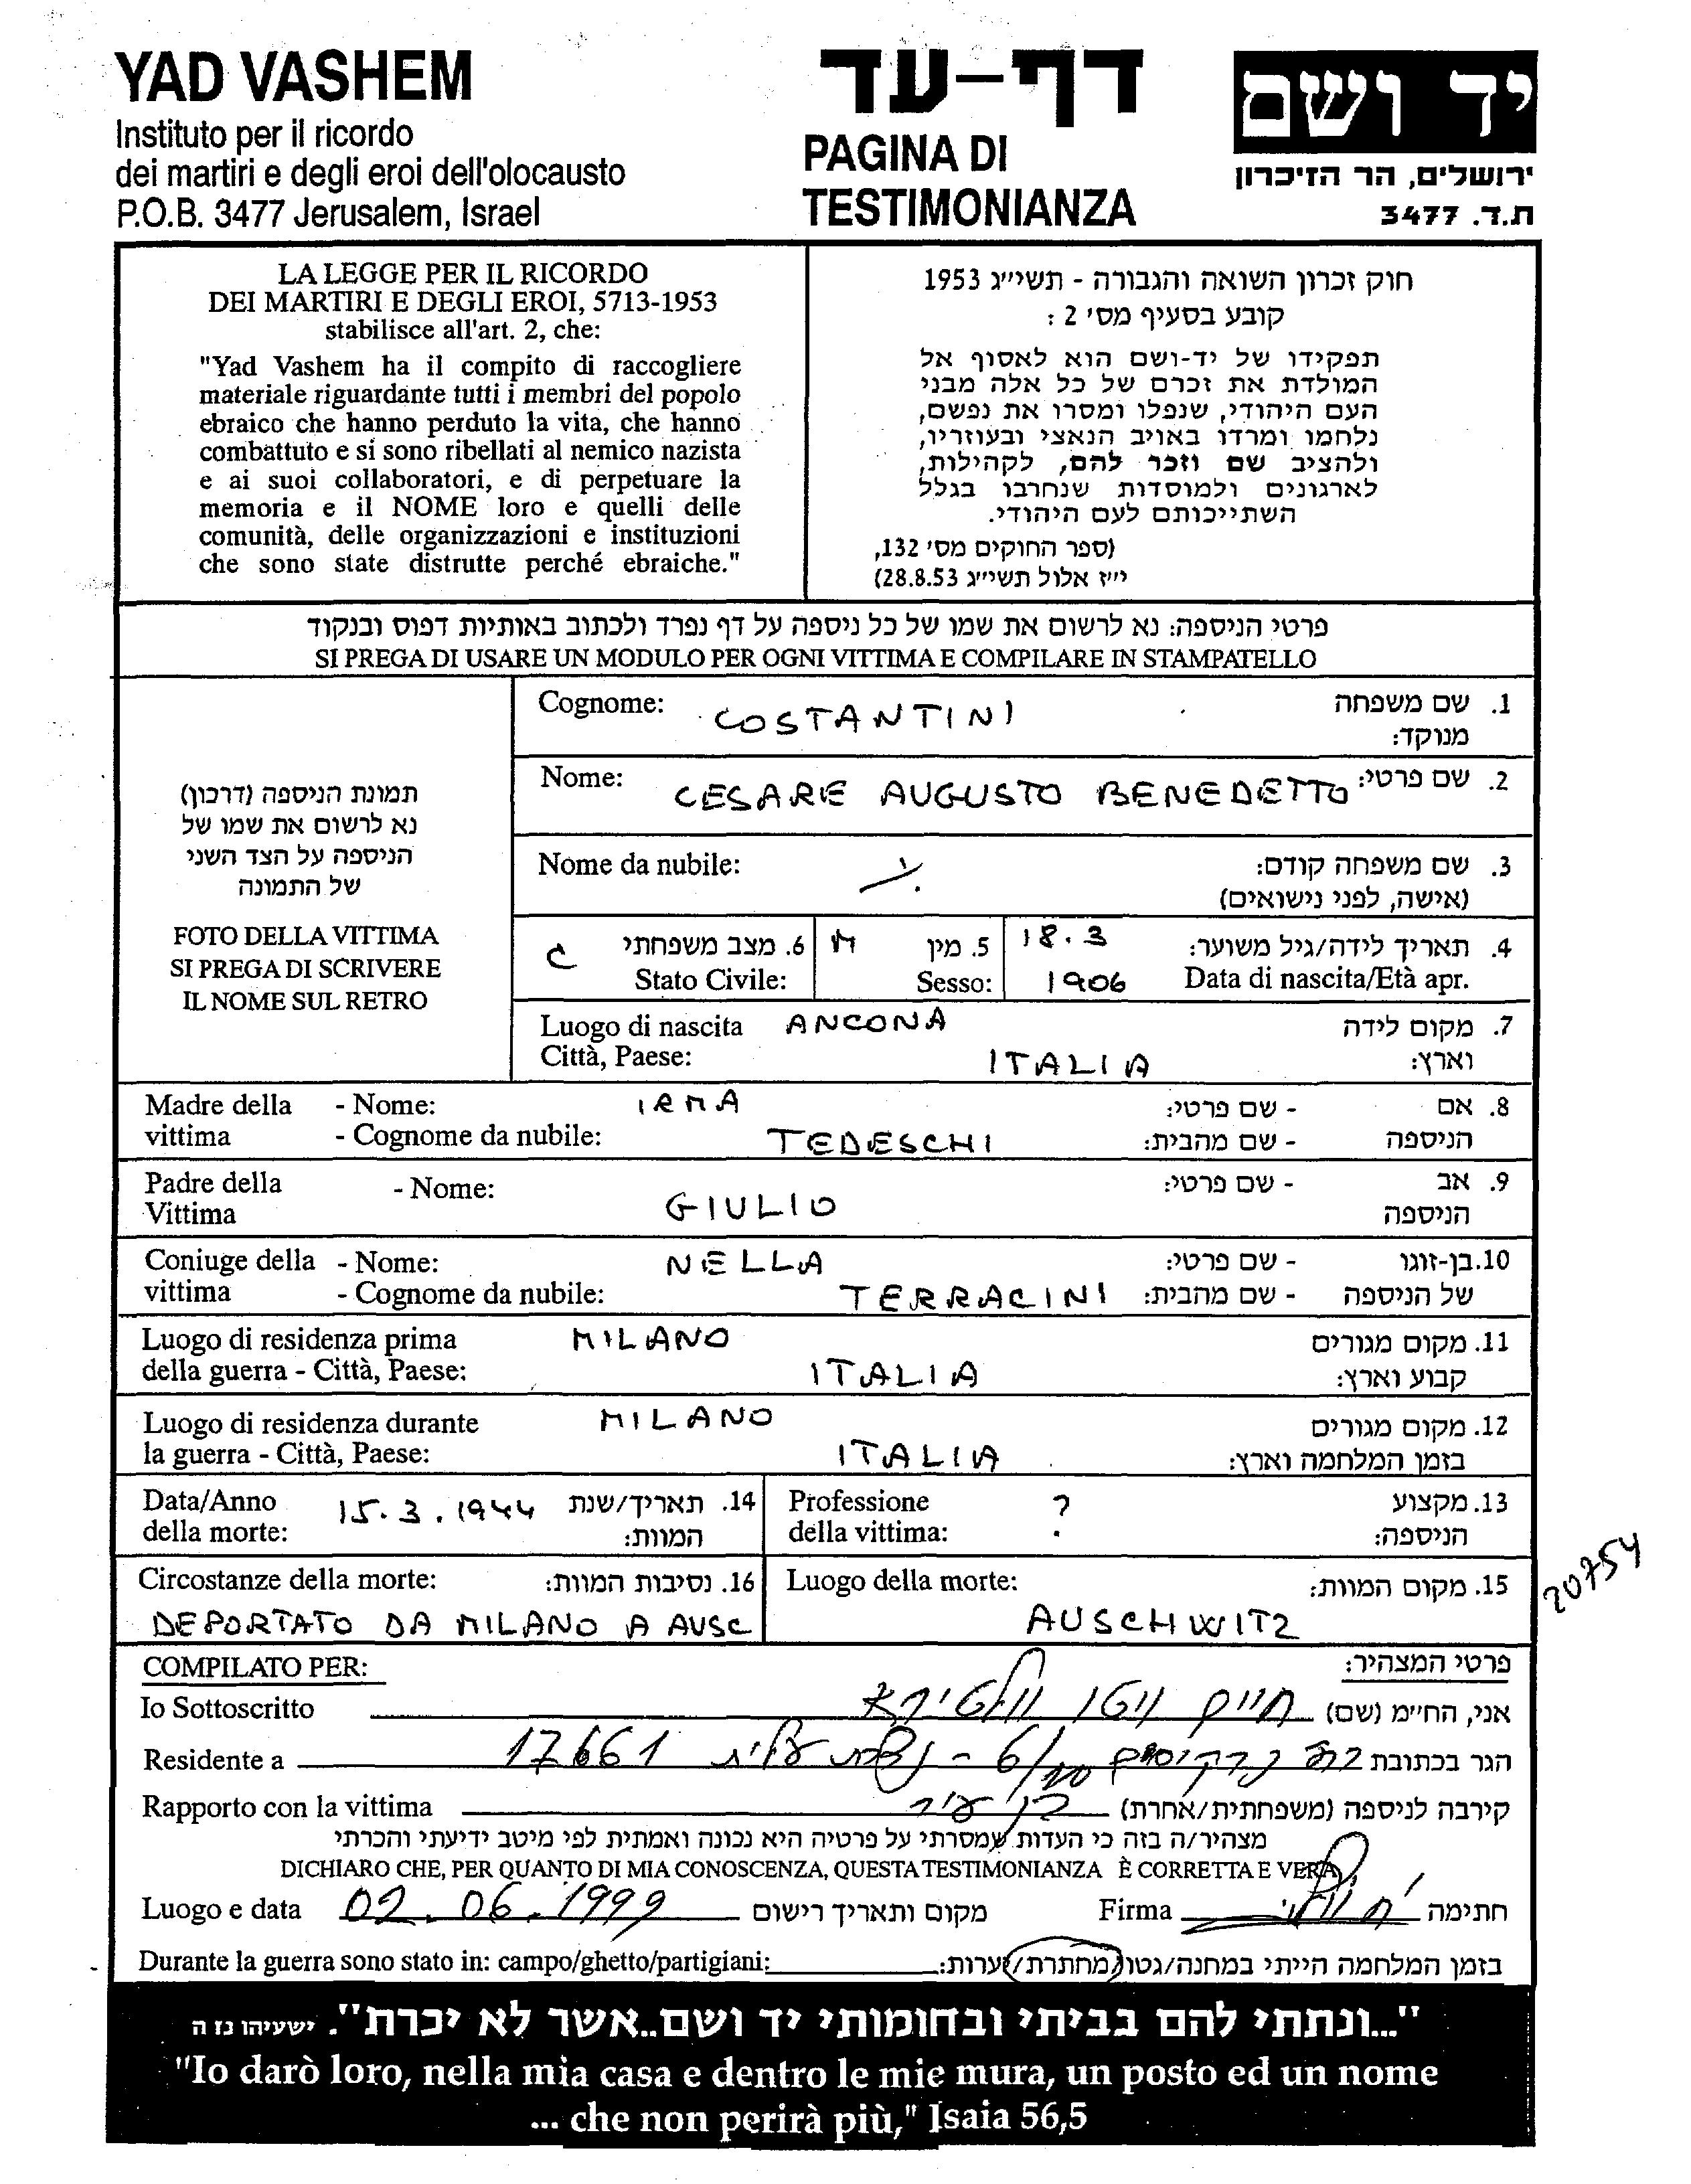 YAD VASHEM
Instituto per il ricordo
dei martiri e degli eroi dell'olocausto
P.O.B. 3477 Jerusalem, Israel
דף-עד
PAGINA DI
TESTIMONIANZA
יד ושם
ירושלים, הר הזיכרון
ת.ד. 3477
LA LEGGE PER IL RICORDO
DEI MARTIRI E DEGLI EROI, 5713-1953
stabilisce all'art. 2, che:
"Yad Vashem ha il compito di raccogliere
materiale riguardante tutti i membri del popolo
ebraico che hanno perduto la vita, che hanno
combattuto e si sono ribellati al nemico nazista
e ai suoi collaboratori, e di perpetuare la
memoria e il NOME loro e quelli delle
comunità, delle organizzazioni e instituzioni
che sono state distrutte perché ebraiche."
חוק זכרון השואה והגבורה - תשי״ג 1953
קובע בסעיף מס׳ 2 :
תפקידו של יד-ושם הוא לאסוף אל
המולדת את זכרם של כל אלה מבני
העם היהודי, שנפלו ומסרו את נפשם,
נלחמו ומרדו באויב הנאצי ובעוזריו,
ולהציב שם וזכר להם, לקהילות,
לארגונים ולמוסדות שנחרבו בגלל
השתייכותם לעם היהודי.
(ספר החוקים מס׳ 132,
י״ז אלול תשי״ג 28.8.53)
פרטי הניספה: נא לרשום את שמו של כל ניספה על דף נפרד ולכתוב באותיות דפוס ובנקוד
SI PREGA DI USARE UN MODULO PER OGNI VITTIMA E COMPILARE IN STAMPATELLO
תמונת הניספה (דרכון)
נא לרשום את שמו של
הניספה על הצד השני
של התמונה
FOTO DELLA VITTIMA
SI PREGA DI SCRIVERE
IL NOME SUL RETRO
Cognome: COSTANTINI 1. שם משפחה
מנוקד:
Nome: CESARE AUGUSTO BENEDETTO 2. שם פרטי:
Nome da nubile: 3. שם משפחה קודם:
(אישה, לפני נישואים)
C 6. מצב משפחתי M 5. מין 18.3 4. תאריך לידה/גיל משוער:
Stato Civile: Sesso: 1906 Data di nascita/Età apr.
Luogo di nascita ANCONA 7. מקום לידה
Città, Paese: ITALIA וארץ:
Madre della - Nome: IRMA - שם פרטי: 8. אם
vittima - Cognome da nubile: TEDESCHI - שם מהבית: הניספה
Padre della - Nome: - שם פרטי: 9. אב
Vittima GIULIO הניספה
Coniuge della - Nome: NELLA - שם פרטי: 10.בן-זוגו
vittima - Cognome da nubile: TERRACINI - שם מהבית: של הניספה
Luogo di residenza prima MILANO 11. מקום מגורים
della guerra - Città, Paese: ITALIA קבוע וארץ:
Luogo di residenza durante MILANO 12. מקום מגורים
la guerra - Città, Paese: ITALIA בזמן המלחמה וארץ:
Data/Anno 15.3.1944 14. תאריך/שנת
della morte: המוות:
Professione ? 13. מקצוע
della vittima: הניספה:
Circostanze della morte: 16. נסיבות המוות:
DEPORTATO DA MILANO A AUSC
Luogo della morte: 15. מקום המוות:
AUSCHWITZ
20754
COMPILATO PER: פרטי המצהיר:
Io Sottoscritto חיים אני, החי״מ (שם)
Residente a 17661 נצרת עלית - 6/ הגר בכתובת
Rapporto con la vittima בן עיר קירבה לניספה (משפחתית/אחרת)
מצהיר/ה בזה כי העדות שמסרתי על פרטיה היא נכונה ואמתית לפי מיטב ידיעתי והכרתי
DICHIARO CHE, PER QUANTO DI MIA CONOSCENZA, QUESTA TESTIMONIANZA È CORRETTA E VERA
Luogo e data 02.06.1999 מקום ותאריך רישום Firma חתימה
Durante la guerra sono stato in: campo/ghetto/partigiani: בזמן המלחמה הייתי במחנה/גטו/מחתרת/יערות:
"...ונתתי להם בביתי ובחומותי יד ושם..אשר לא יכרת". ישעיהו נז ה
"Io darò loro, nella mia casa e dentro le mie mura, un posto ed un nome
... che non perirà più," Isaia 56,5